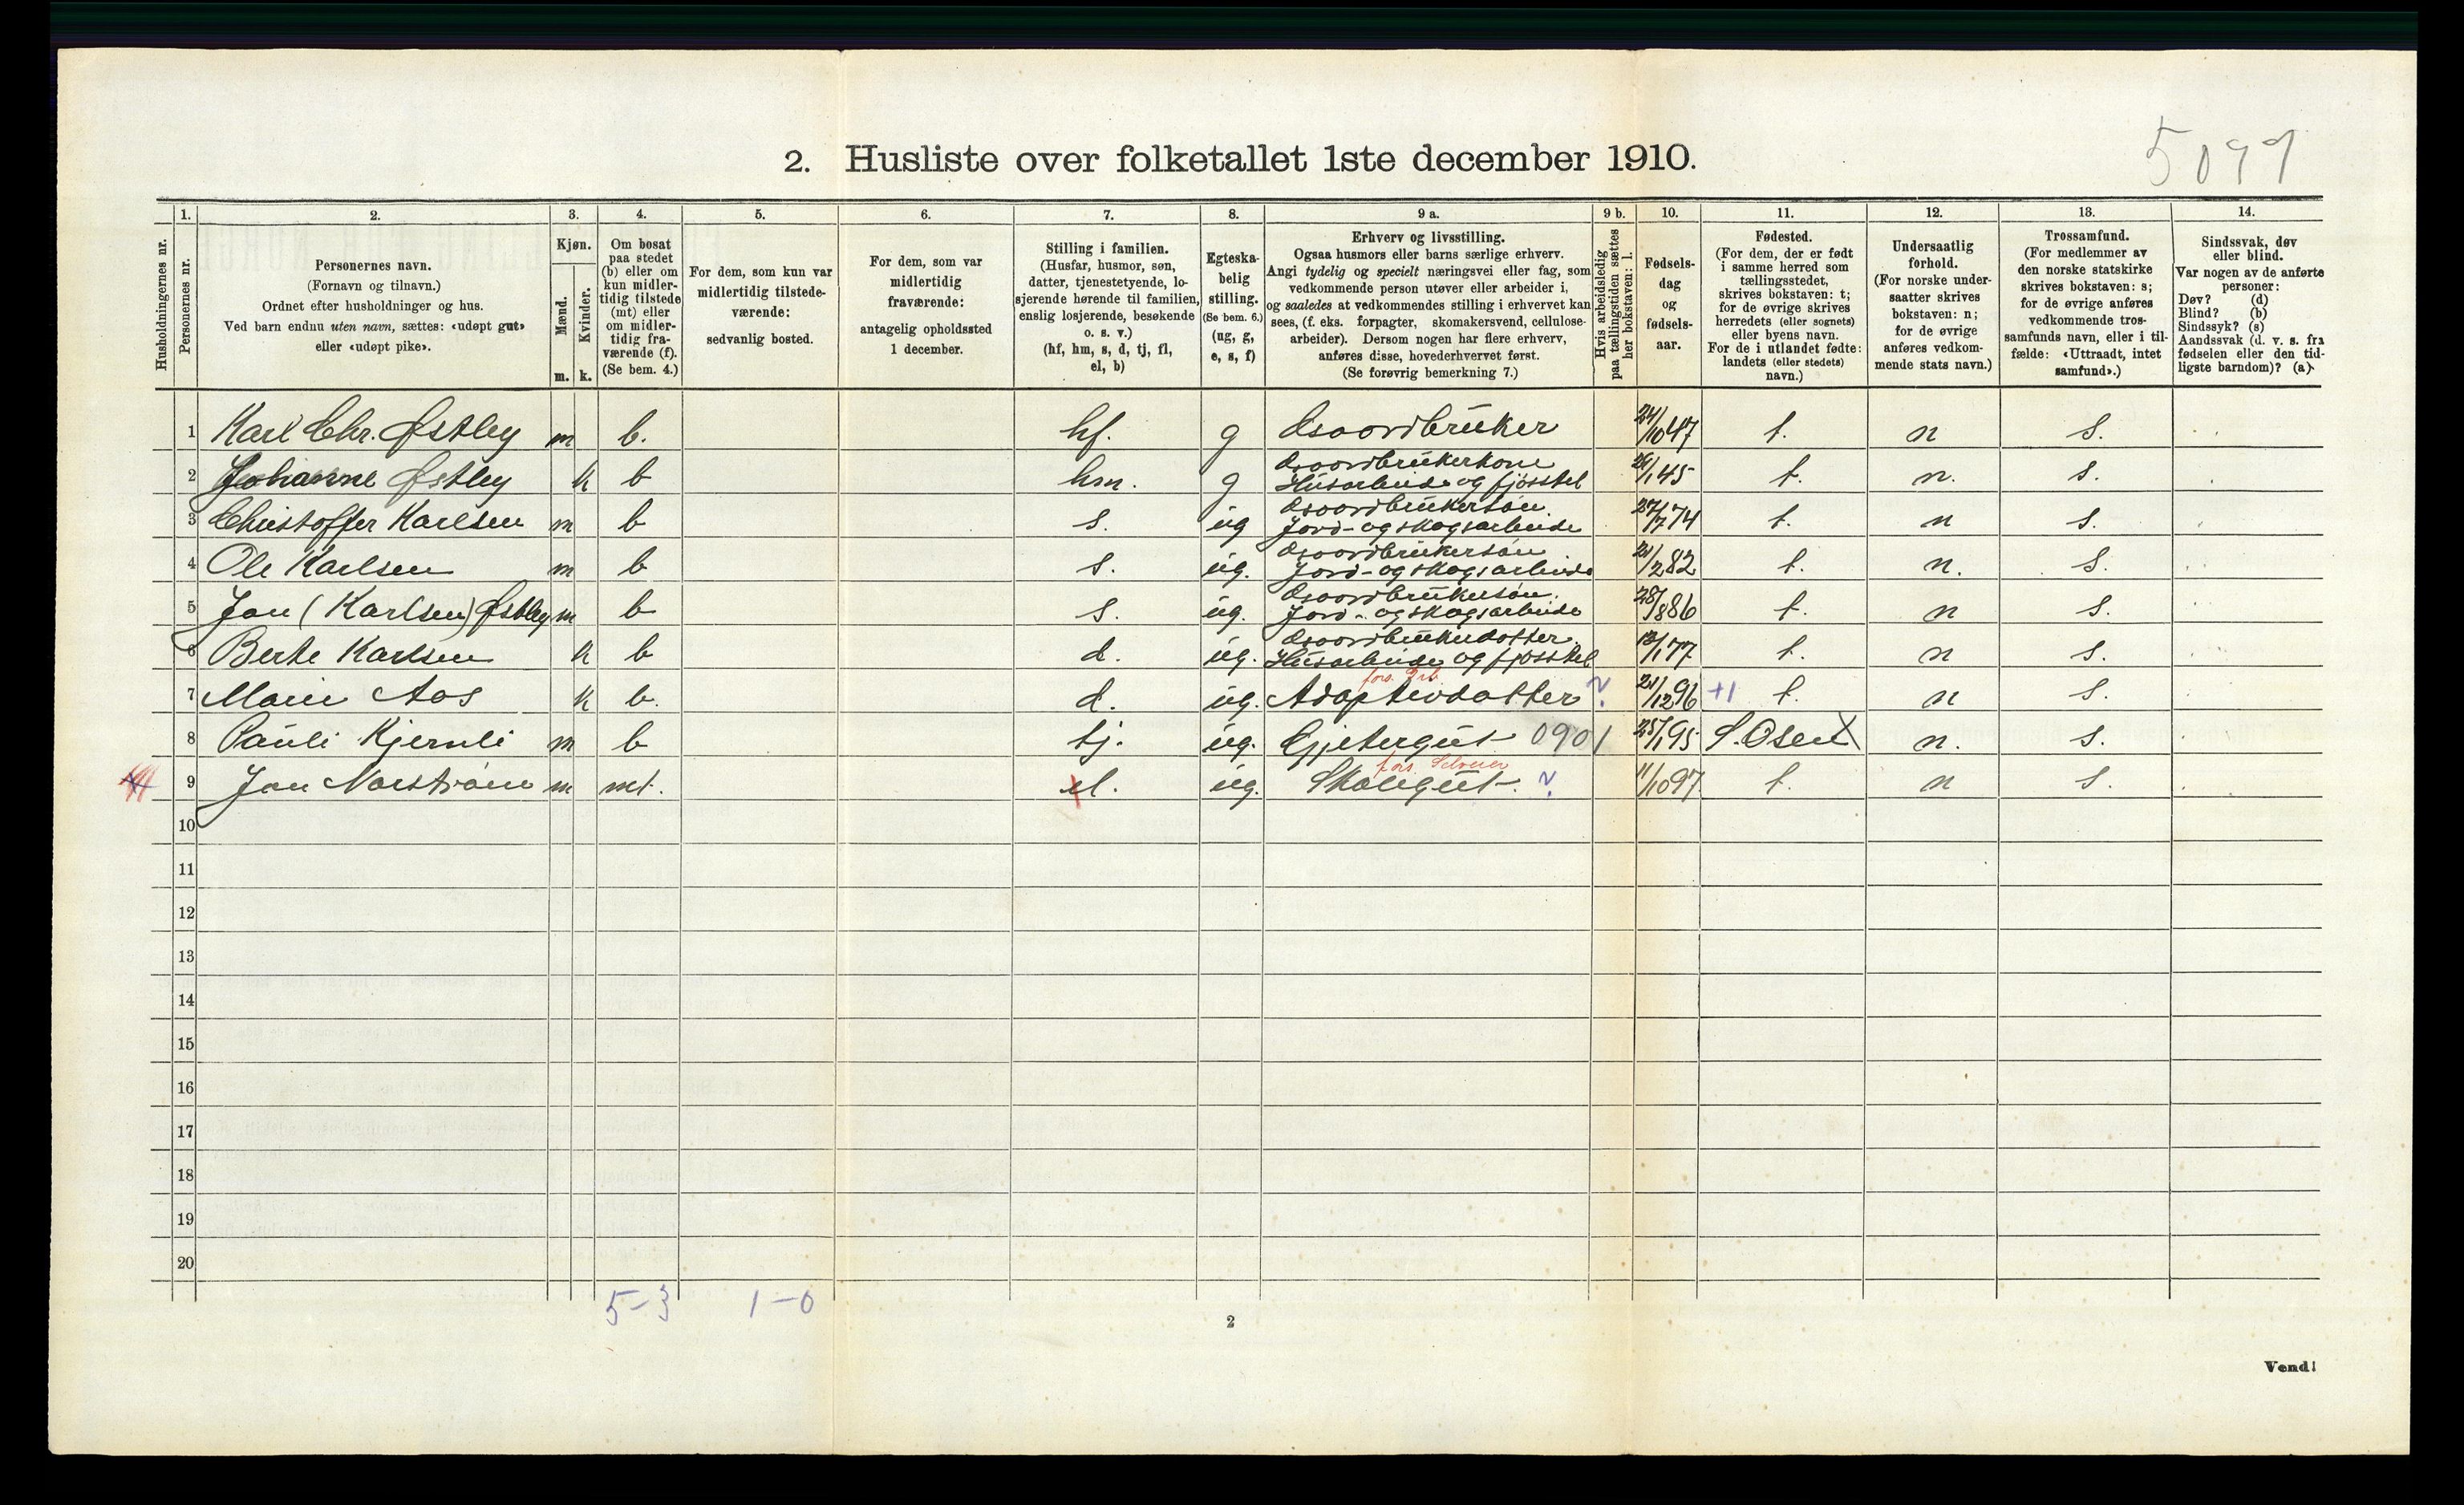 5099
2. Husliste over folketallet 1ste december 1910.
Husholdningernes nr.
1.
Personernes nr.
2.
Personernes navn.
(Fornavn og tilnavn.)
Ordnet efter husholdninger og hus.
Ved barn endnu uten navn, sættes: «udøpt gut»
eller «udøpt pike».
3.
Kjøn.
Mænd.
Kvinder.
m. k.
4.
Om bosat
paa stedet
(b) eller om
kun midler-
tidig tilstede
(mt) eller
om midler-
tidig fra-
værende (f).
(Se bem. 4.)
5.
For dem, som kun var
midlertidig tilstede-
værende:
sedvanlig bosted.
6.
For dem, som var
midlertidig
fraværende:
antagelig opholdssted
1 december.
7.
Stilling i familien.
(Husfar, husmor, søn,
datter, tjenestetyende, lo-
sjerende hørende til familien,
enslig losjerende, besøkende
o. s. v.)
(hf, hm, s, d, tj, fl,
el, b)
8.
Egteska-
belig
stilling.
(Se bem. 6.)
(ug, g,
e, s, f)
9 a.
Erhverv og livsstilling.
Ogsaa husmors eller barns særlige erhverv.
Angi tydelig og specielt næringsvei eller fag, som
vedkommende person utøver eller arbeider i,
og saaledes at vedkommendes stilling i erhvervet kan
sees, (f. eks. forpagter, skomakersvend, cellulose-
arbeider). Dersom nogen har flere erhverv,
anføres disse, hovederhvervet først.
(Se forøvrig bemerkning 7.)
9 b.
Hvis arbeidsledig
paa tællingstiden sættes
her bokstaven: l.
10.
Fødsels-
dag
og
fødsels-
aar.
11.
Fødested.
(For dem, der er født
i samme herred som
tællingsstedet,
skrives bokstaven: t;
for de øvrige skrives
herredets (eller sognets)
eller byens navn.
For de i utlandet fødte:
landets (eller stedets)
navn.)
12.
Undersaatlig
forhold.
(For norske under-
saatter skrives
bokstaven: n;
for de øvrige
anføres vedkom-
mende stats navn.)
13.
Trossamfund.
(For medlemmer av
den norske statskirke
skrives bokstaven: s;
for de øvrige anføres
vedkommende tros-
samfunds navn, eller i til-
fælde: «Uttraadt, intet
samfund».)
14.
Sindssvak, døv
eller blind.
Var nogen av de anførte
personer:
Døv? (d)
Blind? (b)
Sindssyk? (s)
Aandssvak (d. v. s. fra
fødselen eller den tid-
ligste barndom)? (a).
1 Karl Chr. Østby m b. hf. g Gaardbruker 24/10 47 t. n s.
2 Johanne Østby k b hm. g Gaardbrukerkone Husarbeide og fjøsstel 1 45 t. n. s.
3 Christoffer Karlsen m b s. ug Gaardbrukersøn. Jord- og skogsarbeide 27/7 74 t. n s.
4 Ole Karlsen m b s. ug. Gaardbrukersøn. Jord- og skogsarbeide 21/2 82 t. n. s.
5 Jon (Karlsen) Østby m b s. ug. Gaardbrukersøn. Jord- og skogsarbeide 28/8 86 t. n s.
6 Berte Karlsen k b d. ug. Gaardbrukerdatter. Husarbeide og fjøsstel 1 77 t. n s.
7 Marie Aos k b. d. ug. Adoptivdatter fors. ? 21/12 96 +1 t. n s.
8 Pauli Kjernli m b tj. ug. Gjetergut 0901 25/1 95 S. Osen X n. s.
9 Jon m mt. el. ug. Skolegut. fors. ? 11/10 97 t. n s.
10
11
12
13
14
15
16
17
18
19
20
5-3 1-0
2
Vend!